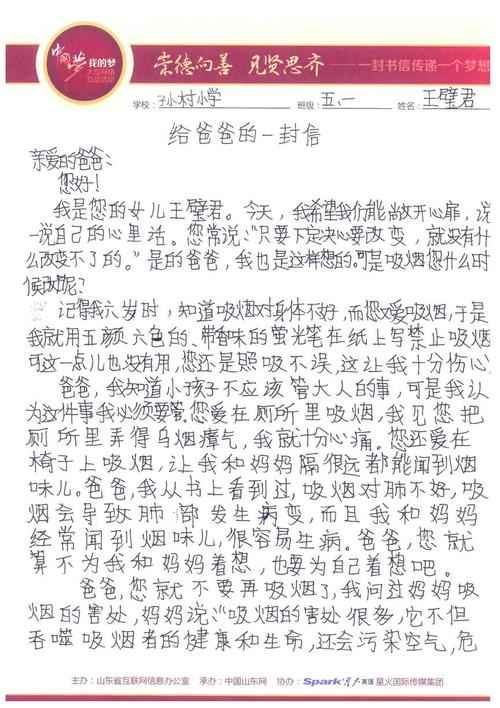 中国梦 我的梦
大型网络
互动活动
崇德向善 见贤思齐 ——一封书信传递一个梦想
学校：孙村小学 班级：五、一 姓名：王璧君
给爸爸的一封信
亲爱的爸爸：
您好！
我是您的女儿王璧君。今天，我希望我们能尚放开心扉，说
一说自己的心里话。您常说：“只要下定决心要改变，就没有什
么改变不了的。”是的爸爸，我也是这样想的。可是吸烟您什么时
候改呢？
记得我六岁时，知道吸烟对身体不好，而您又爱吸烟，于是
我就用五颜六色的、带香味的萤光笔在纸上写禁止吸烟
可这一点儿也没有用，您还是照吸不误，这让我十分伤心
爸爸，我知道小孩子不应该管大人的事，可是我认
为这件事我必须要管。您爱在厕所里吸烟，我见您把
厕所里弄得乌烟瘴气，我就十分心痛。您还爱在
椅子上吸烟，让我和妈妈隔很远都能闻到烟
味儿。爸爸，我从书上看到过，吸烟对肺不好，吸
烟会导致肺部发生病变，而且我和妈妈
经常闻到烟味儿，很容易生病。爸爸，您就
算不为我和妈妈着想，也要为自己着想吧。
爸爸，您就不要再吸烟了，我问过妈妈吸
烟的害处，妈妈说：“吸烟的害处很多，它不但
吞噬吸烟者的健康和生命，还会污染空气，危
主办：山东省互联网信息办公室 承办：中国山东网 协办：Spark 星火英语 星火国际传媒集团